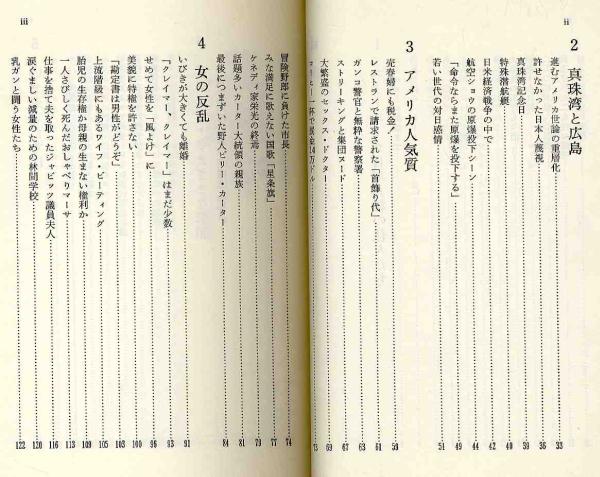 ii
2 真珠湾と広島
進むアメリカ世論の重層化 33
許せなかった日本人蔑視 36
真珠湾記念日 38
特殊潜航艇 40
日米経済戦争の中で 42
航空ショウの原爆投下シーン 44
「命令ならまた原爆を投下する」 49
若い世代の対日感情 51
3 アメリカ人気質
売春婦にも税金! 59
レストランで請求された「首飾り代」 61
ガンコ警官と無粋な警察署 63
ストリーキングと集団ヌード 67
大繁盛のセックス・ドクター 69
コーヒー一杯で罰金14万ドル 73
iii
冒険野郎に負けた市長 74
みな満足に歌えない国歌「星条旗」 77
ケネディ家栄光の終焉 79
話題多いカーター大統領の親族 81
最後につまずいた野人ビリー・カーター 84
4 女の反乱
いびきが大きくても離婚 91
「クレイマー、クレイマー」はまだ少数 93
せめて女性を「風よけ」に 96
美貌に特権を許さない 100
「勘定書は男性がどうぞ」 103
上流階級にもあるワイフ・ビーティング 105
胎児の生存権か母親の生まない権利か 109
一人さびしく死んだおしゃべりマーサ 113
仕事を捨て夫を取ったジャビッツ議員夫人 116
涙ぐましい減量のための林間学校 120
乳ガンと闘う女性たち 122